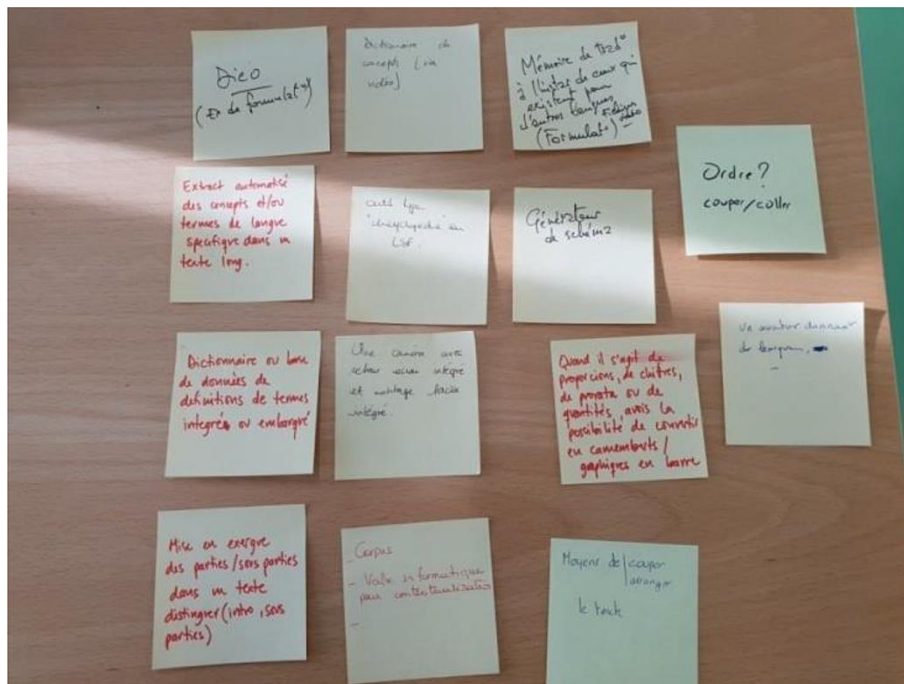 Dico
(Ex de formulat°)
Dictionnaire de
concepts (via
vidéo)
Mémoire de trad°
à l'instar de ceux qui
existent pour
d'autres langues
(Formulat°)
Ordre?
couper/coller
Extract automatisé
des concepts et/ou
termes de langue
specifique dans un
texte long.
outil type
"encyclopédie" en
LSF.
Générateur
de schéma
Dictionnaire ou base
de données de
definitions de termes
intégrés ou embarqué
Une caméra avec
retour écran intégré
et montage facile
intégré.
Quand il s'agit de
proporcions, de chiffres,
de prorata ou de
quantités, avoir la
possibilité de convertir
en camemberts /
graphiques en barre
Un
Mise en exergue
des parties/sous parties
dans un texte
distinguer (intro, sous
parties)
_ Corpus
_ Veille informatique
pour contextualisation
_
Moyens de couper
arranger
le texte